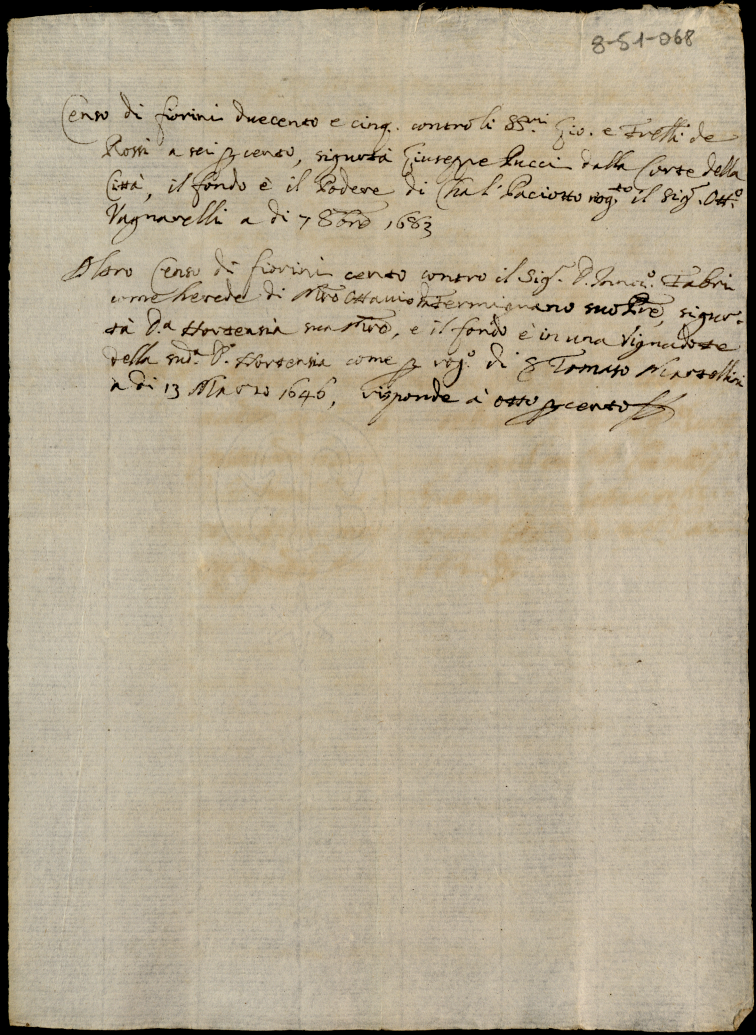 8-51-068
Censo di fiorini duecento e cinq. contro li SS.ri Gio. e Frelli de
Rossi a sei p cento, sigurtà Giuseppe Pucci dalla Corte della
Città, il fondo è il Podere di Cha l' Paciotto rog.to il Sig.r Ott.o
Vagnarelli a di 7 8bre 1683
Altro Censo di fiorini cento contro il Sig.r D. Innoc.o Fabri
come herede di Mro Ottavio da Fermignano suo Pre, sigur-
tà D.a Hortensia sua Mre, e il fondo è in una Vigna dote
della sud.a D.a Hortensia come p rog.o di S Tomaso
a di 13 Marzo 1646, risponde à otto p cento